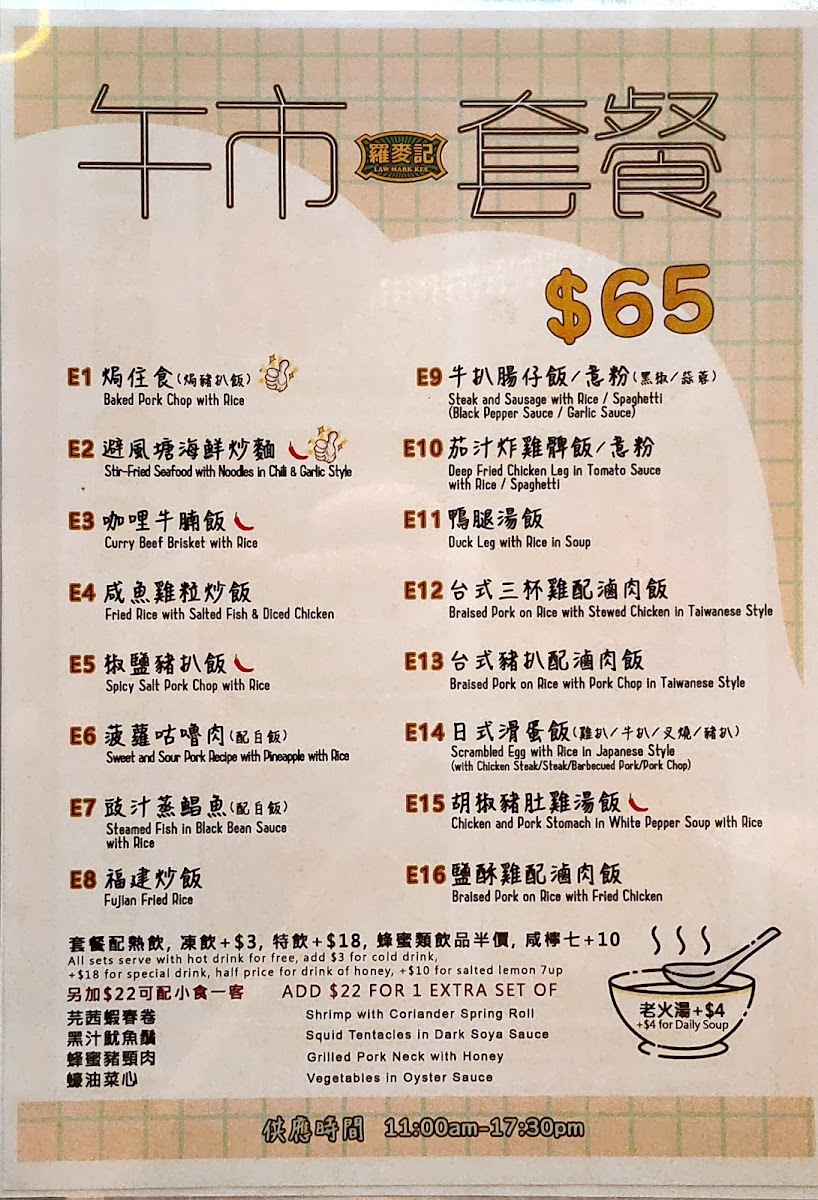 午市 套餐
羅麥記
LAW MARK KEE
$65
E1 焗住食(焗豬扒飯)
Baked Pork Chop with Rice
E2 避風塘海鮮炒麵
Stir-Fried Seafood with Noodles in Chili & Garlic Style
E3 咖哩牛腩飯
Curry Beef Brisket with Rice
E4 咸魚雞粒炒飯
Fried Rice with Salted Fish & Diced Chicken
E5 椒鹽豬扒飯
Spicy Salt Pork Chop with Rice
E6 菠蘿咕嚕肉(配白飯)
Sweet and Sour Pork Recipe with Pineapple with Rice
E7 豉汁蒸鯧魚(配白飯)
Steamed Fish in Black Bean Sauce
with Rice
E8 福建炒飯
Fujian Fried Rice
E9 牛扒腸仔飯/意粉(黑椒/蒜蓉)
Steak and Sausage with Rice / Spaghetti
(Black Pepper Sauce / Garlic Sauce)
E10 茄汁炸雞髀飯/意粉
Deep Fried Chicken Leg in Tomato Sauce
with Rice / Spaghetti
E11 鴨腿湯飯
Duck Leg with Rice in Soup
E12 台式三杯雞配滷肉飯
Braised Pork on Rice with Stewed Chicken in Taiwanese Style
E13 台式豬扒配滷肉飯
Braised Pork on Rice with Pork Chop in Taiwanese Style
E14 日式滑蛋飯(雞扒/牛扒/叉燒/豬扒)
Scrambled Egg with Rice in Japanese Style
(with Chicken Steak/Steak/Barbecued Pork/Pork Chop)
E15 胡椒豬肚雞湯飯
Chicken and Pork Stomach in White Pepper Soup with Rice
E16 鹽酥雞配滷肉飯
Braised Pork on Rice with Fried Chicken
套餐配熱飲, 凍飲+$3, 特飲+$18, 蜂蜜類飲品半價, 咸檸七+10
All sets serve with hot drink for free, add $3 for cold drink,
+$18 for special drink, half price for drink of honey, +$10 for salted lemon 7up
另加$22可配小食一客 ADD $22 FOR 1 EXTRA SET OF
芫茜蝦春卷 Shrimp with Coriander Spring Roll
黑汁魷魚鬚 Squid Tentacles in Dark Soya Sauce
蜂蜜豬頸肉 Grilled Pork Neck with Honey
蠔油菜心 Vegetables in Oyster Sauce
老火湯+$4
+$4 for Daily Soup
供應時間 11:00am-17:30pm